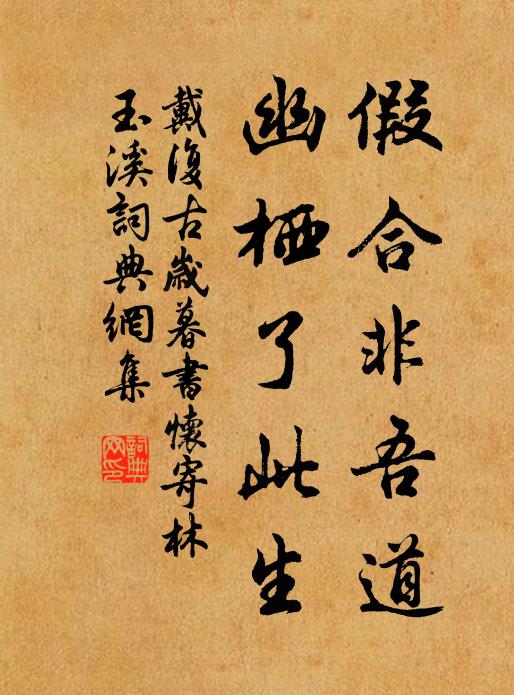 假合非吾道
幽栖了此生
戴復古歲暮書懷寄林
玉溪詞典網集
詞典网印